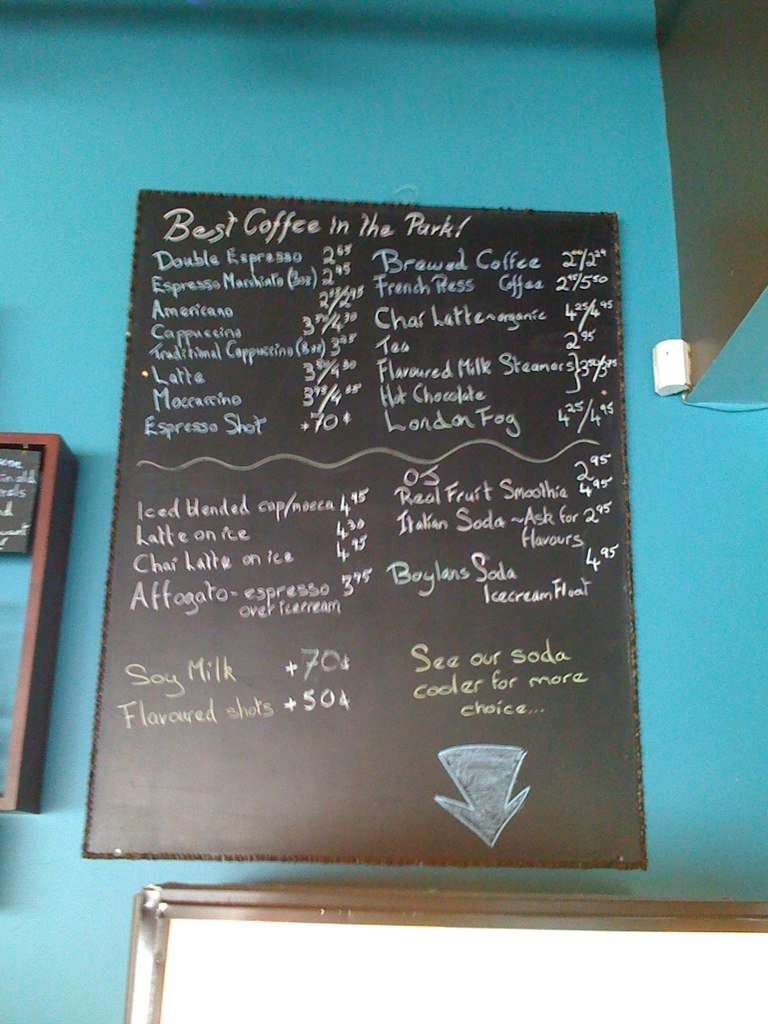 Best Coffee in the Park!
Double Espresso 2.65
Espresso Macchiato (3oz) 2.95
Americano
Cappuccino
Traditional Cappuccino (8oz)
Latte
Moccaccino
Espresso Shot +70¢
Brewed Coffee
French Press Coffee 2.95/5.50
Chai Latte~organic 4.25/4.95
Tea 2.95
Flavoured Milk Steamers
Hot Chocolate
London Fog 4.25/4.95
Iced blended cap/mocca 4.95
Latte on ice 4.30
Chai Latte on ice 4.95
Affogato - espresso 3.95
over icecream
OJ 2.95
Real Fruit Smoothie 4.95
Italian Soda ~ Ask for 2.95
flavours
Boylans Soda 4.95
Icecream Float
Soy Milk +70¢
Flavoured shots +50¢
See our soda
cooler for more
choice...